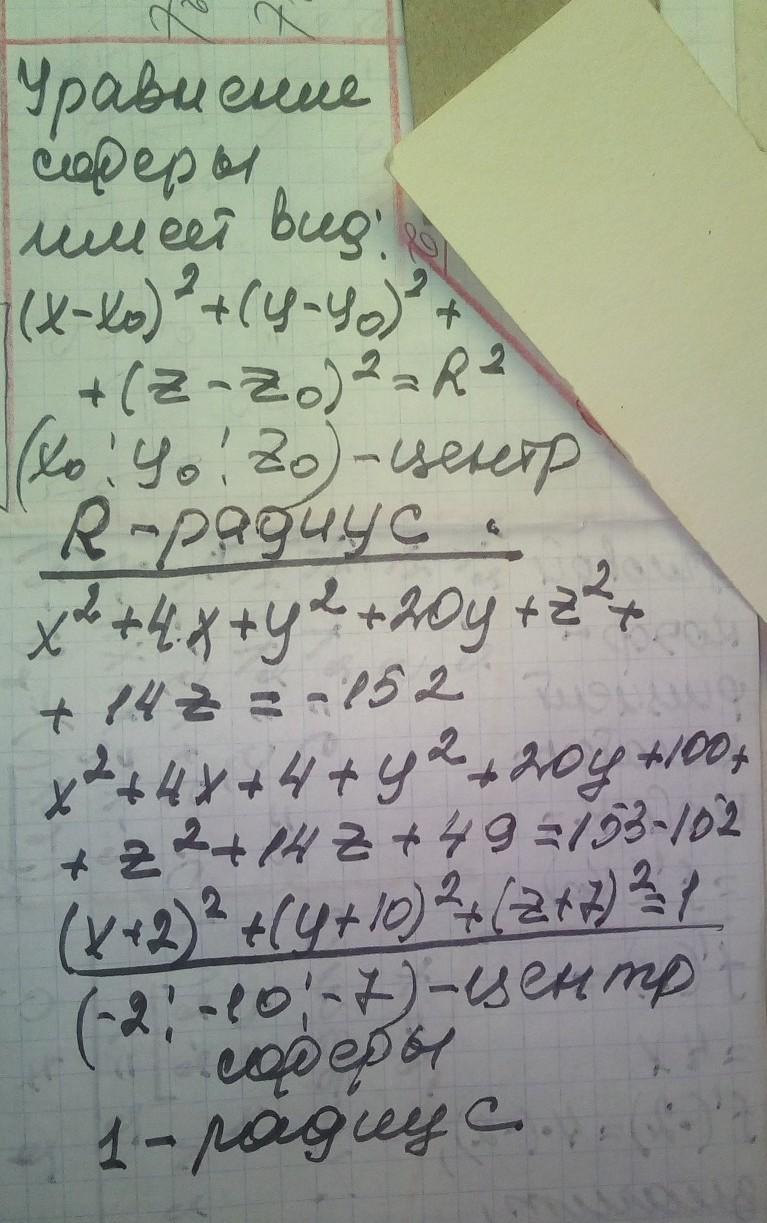 Уравнение
сферы
имеет вид:
(x-x₀)²+(y-y₀)²+
+(z-z₀)²=R²
(x₀; y₀; z₀)-центр
R-радиус.
x²+4x+y²+20y+z²+
+14z=-152
x²+4x+4+y²+20y+100+
+z²+14z+49=153-152
(x+2)²+(y+10)²+(z+7)²=1
(-2; -10; -7)-центр
сферы
1-радиус